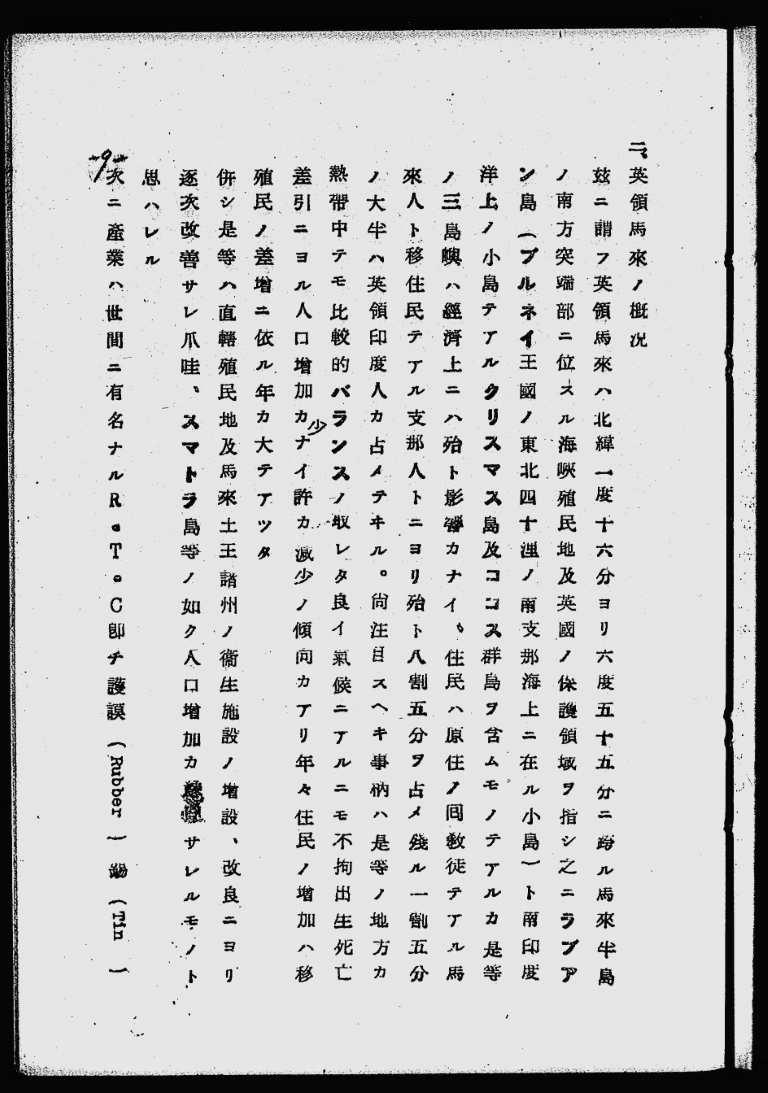 二、英領馬來ノ概況
玆ニ謂フ英領馬來ハ北緯一度十六分ヨリ六度五十五分ニ跨ル馬來半島
ノ南方突端部ニ位スル海峽殖民地及英國ノ保護領域ヲ指シ之ニラブア
ン島（ブルネイ王國ノ東北四十浬ノ南支那海上ニ在ル小島）ト南印度
洋上ノ小島テアルクリスマス島及ココス群島ヲ含ムモノテアルカ是等
ノ三島嶼ハ經濟上ニハ殆ト影響カナイ。住民ハ原住ノ囘敎徒テアル馬
來人ト移住民テアル支那人トニヨリ殆ト八割五分ヲ占メ殘ル一割五分
ノ大半ハ英領印度人カ占メテヰル。尙注目スヘキ事柄ハ是等ノ地方カ
熱帶中テモ比較的バランスノ取レタ良イ氣候ニアルニモ不拘出生死亡
差引ニヨル人口增加カ少ナイ許カ減少ノ傾向カアリ年々住民ノ增加ハ移
殖民ノ差增ニ依ル年カ大テアツタ
併シ是等ハ直轄殖民地及馬來土王諸州ノ衞生施設ノ增設、改良ニヨリ
逐次改善サレ爪哇、スマトラ島等ノ如ク人口增加カサレルモノト
思ハレル
次ニ產業ハ世間ニ有名ナルR。T。C卽チ護謨（Rubber）錫（Tin）
-9-